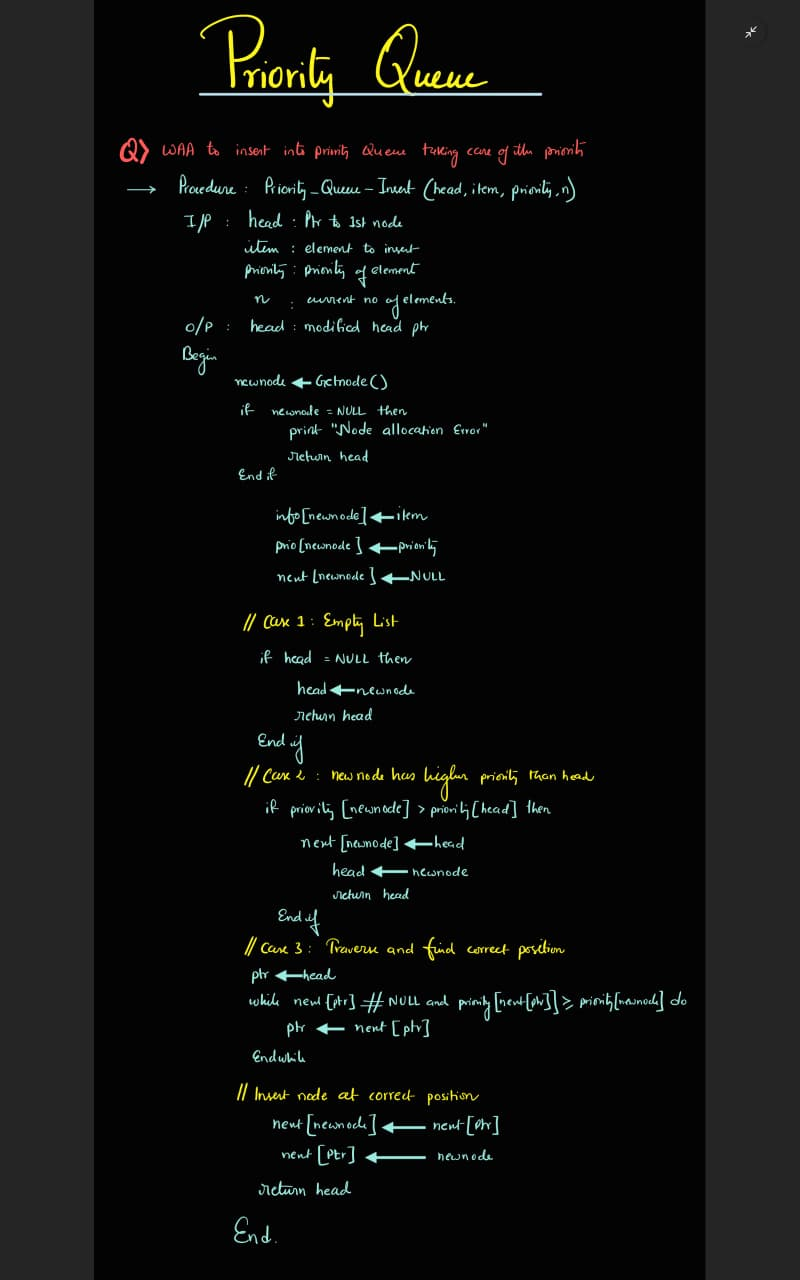 Priority Queue
Q> WAA to insert into priority Queue taking care of the priority
→ Procedure : Priority_Queue-Insert (head, item, priority, n)
I/P : head : Ptr to 1st node
item : element to insert
priority : priority of element
n : current no of elements.
O/P : head : modified head ptr
Begin
newnode ← Getnode()
if newnode = NULL then
print "Node allocation Error"
return head
End if
info[newnode] ← item
prio[newnode] ← priority
next[newnode] ← NULL
// Case 1 : Empty List
if head = NULL then
head ← newnode
return head
End if
// Case 2 : new node has higher priority than head
if priority [newnode] > priority[head] then
next [newnode] ← head
head ← newnode
return head
End if
// Case 3 : Traverse and find correct position
ptr ← head
while next [ptr] ≠ NULL and priority[next[ptr]] ≥ priority[newnode] do
ptr ← next [ptr]
Endwhile
// Insert node at correct position
next [newnode] ← next [ptr]
next [ptr] ← newnode
return head
End.